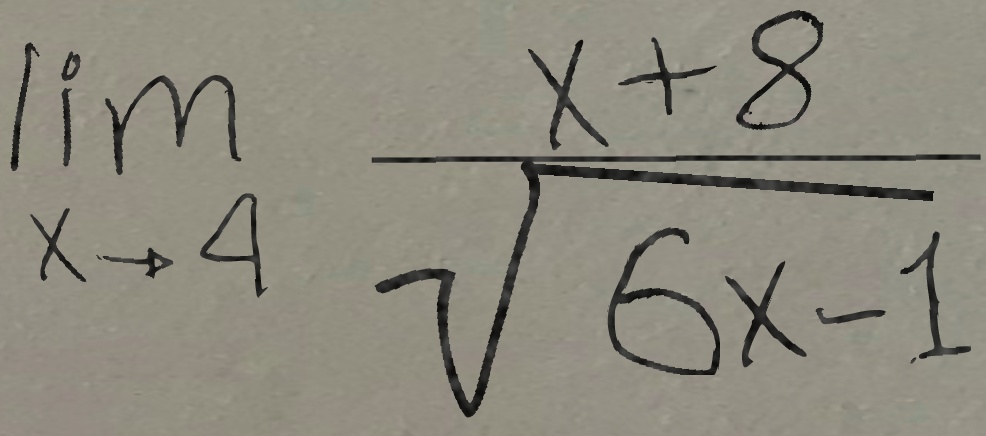 lim x→4 (x+8)/√(6x-1)